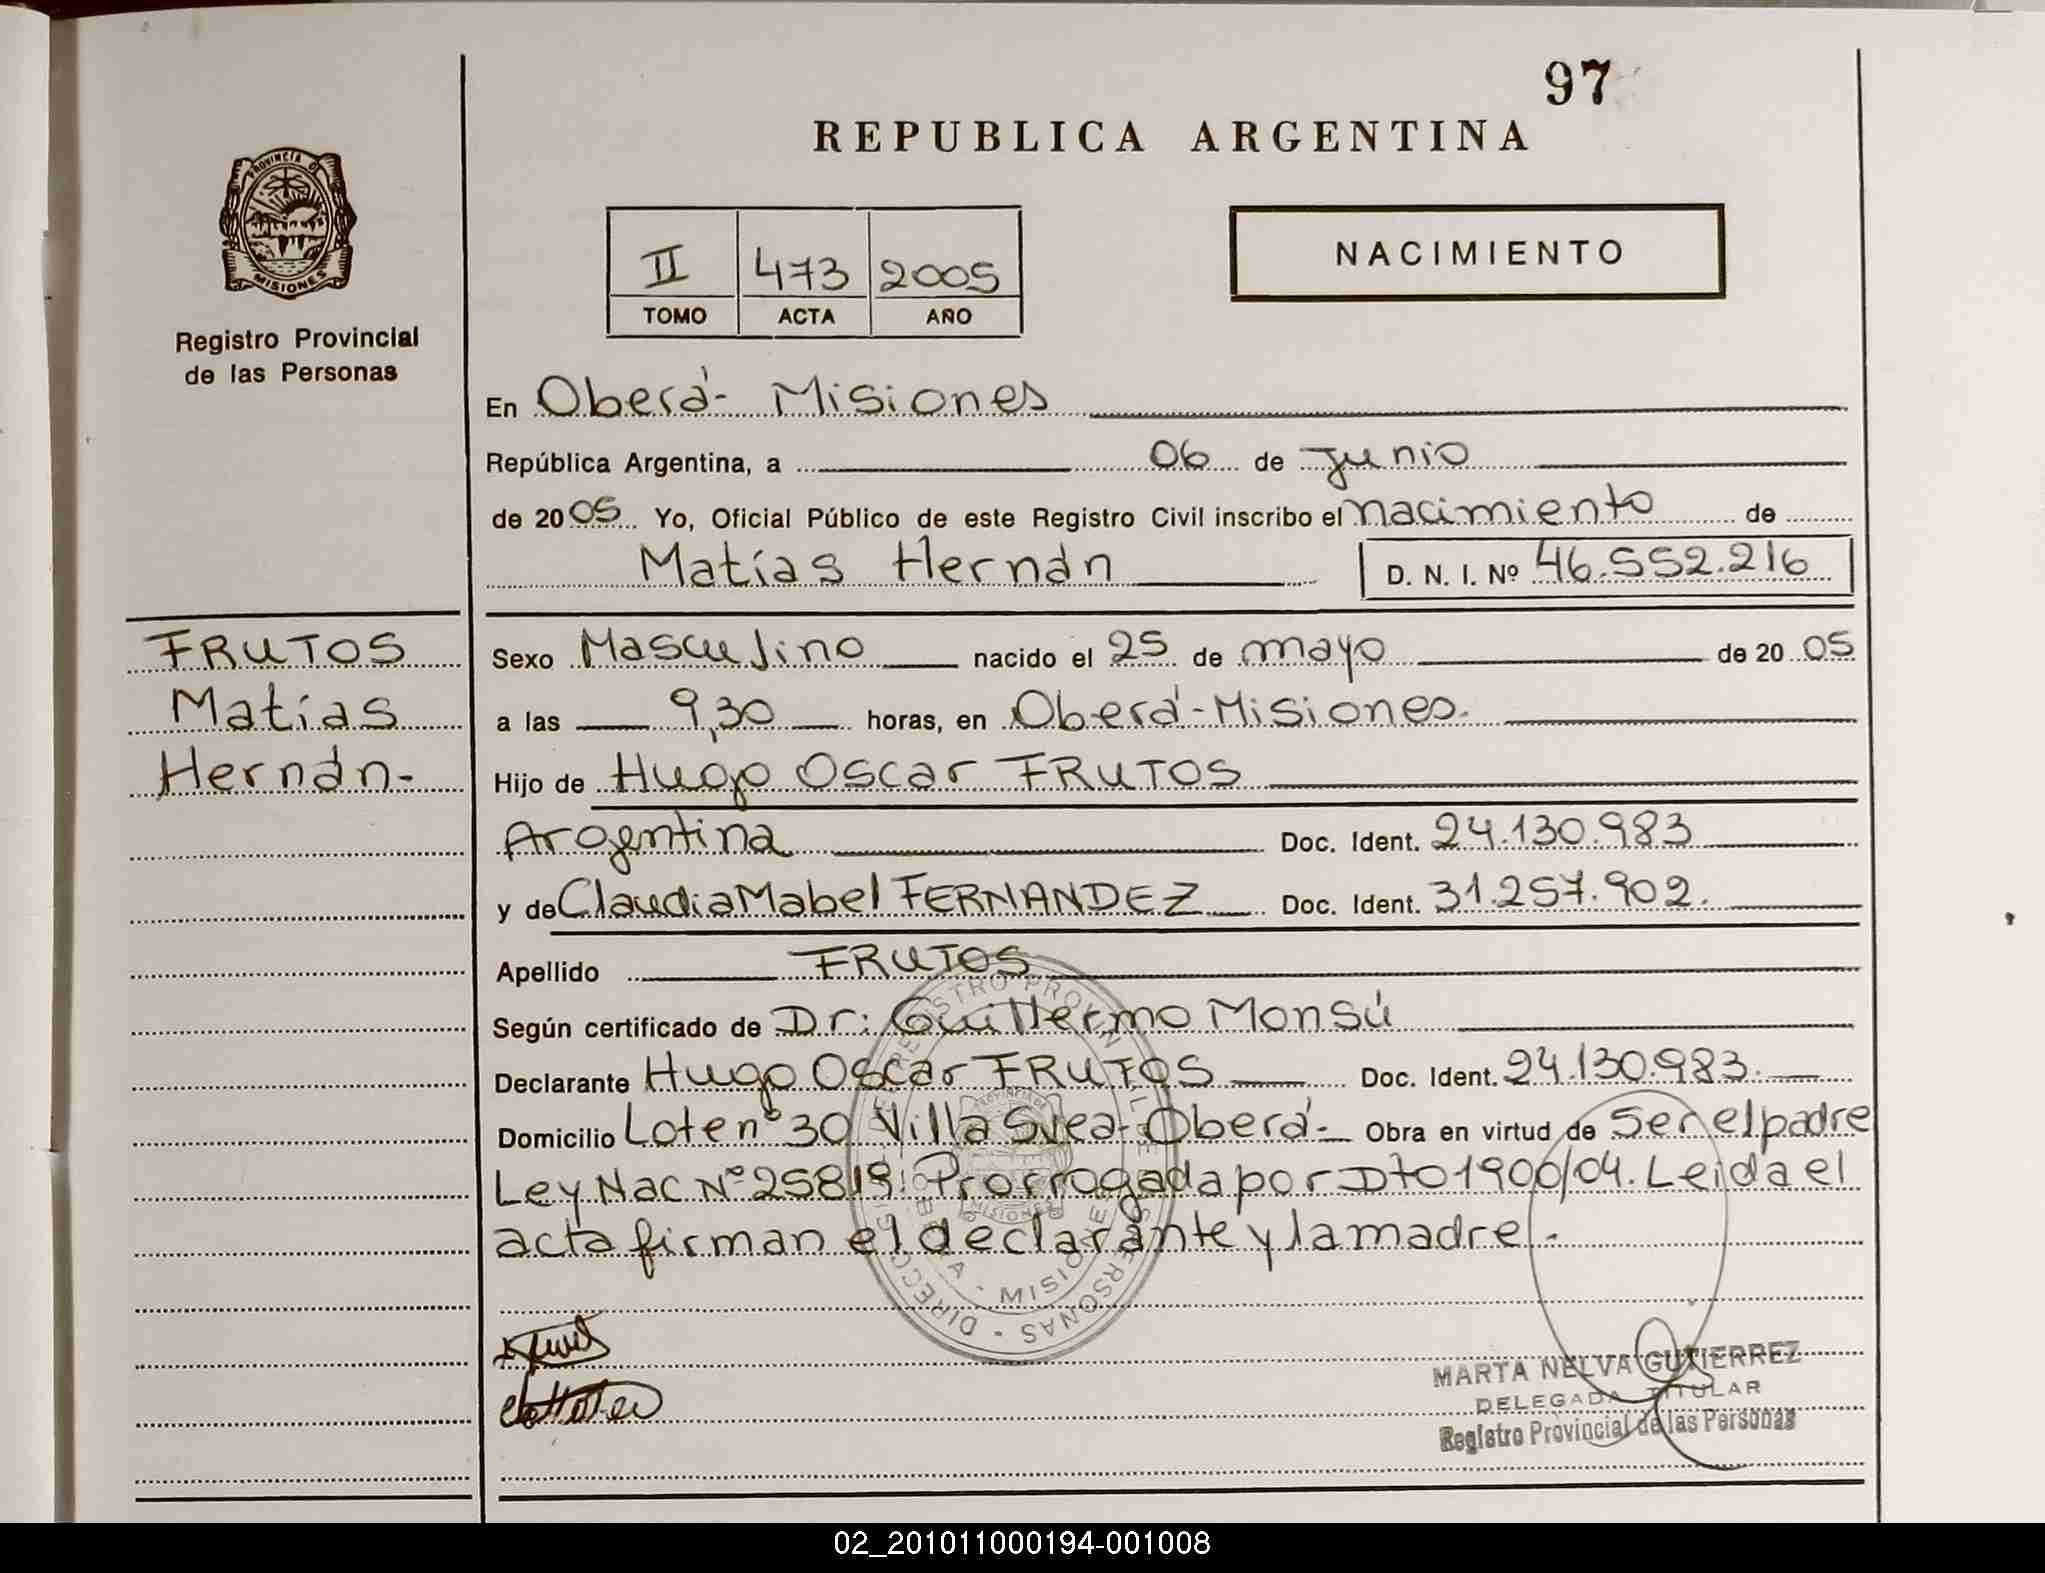 97
REPUBLICA ARGENTINA
PROVINCIA DE
MISIONES
Registro Provincial
de las Personas
II 473 2005
TOMO ACTA AÑO
NACIMIENTO
En Oberá- Misiones
República Argentina, a 06 de Junio
de 2005 Yo, Oficial Público de este Registro Civil inscribo el nacimiento de
Matías Hernán D. N. I. Nº 46.552.216
FRUTOS
Matías
Hernán-
Sexo Masculino nacido el 25 de mayo de 2005
a las 9,30 horas, en Oberá-Misiones.
Hijo de Hugo Oscar FRUTOS
Argentina Doc. Ident. 24.130.983
y de Claudia Mabel FERNANDEZ Doc. Ident. 31.257.902.
Apellido FRUTOS
Según certificado de Dr: Guillermo Monsú
Declarante Hugo Oscar FRUTOS Doc. Ident. 24.130.983.
Domicilio Lote nº 30 Villa Svea- Oberá- Obra en virtud de Ser el padre
Ley Nac Nº 25819: Prorrogada por Dto 1900/04. Leída el
acta firman el declarante y la madre.-
MARTA NELVA GUTIERREZ
DELEGADA TITULAR
Registro Provincial de las Personas
02_201011000194-001008